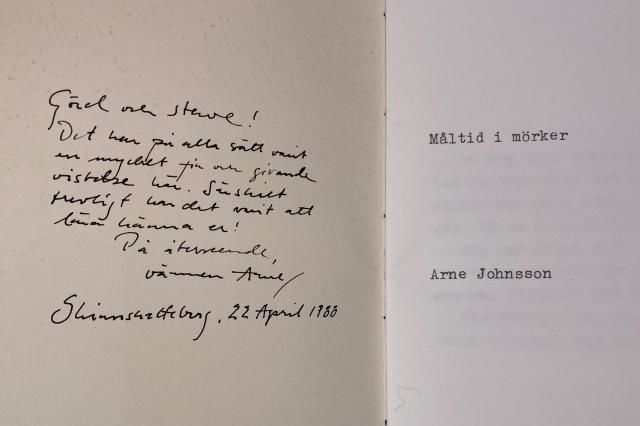 Görel och Steve!
Det har på alla sätt varit
en mycket fin och givande
vistelse här. Särskilt
trevligt har det varit att
lära känna er!
På återseende,
vännen Arne
Skinnskatteberg, 22 April 1988
Måltid i mörker
Arne Johnsson